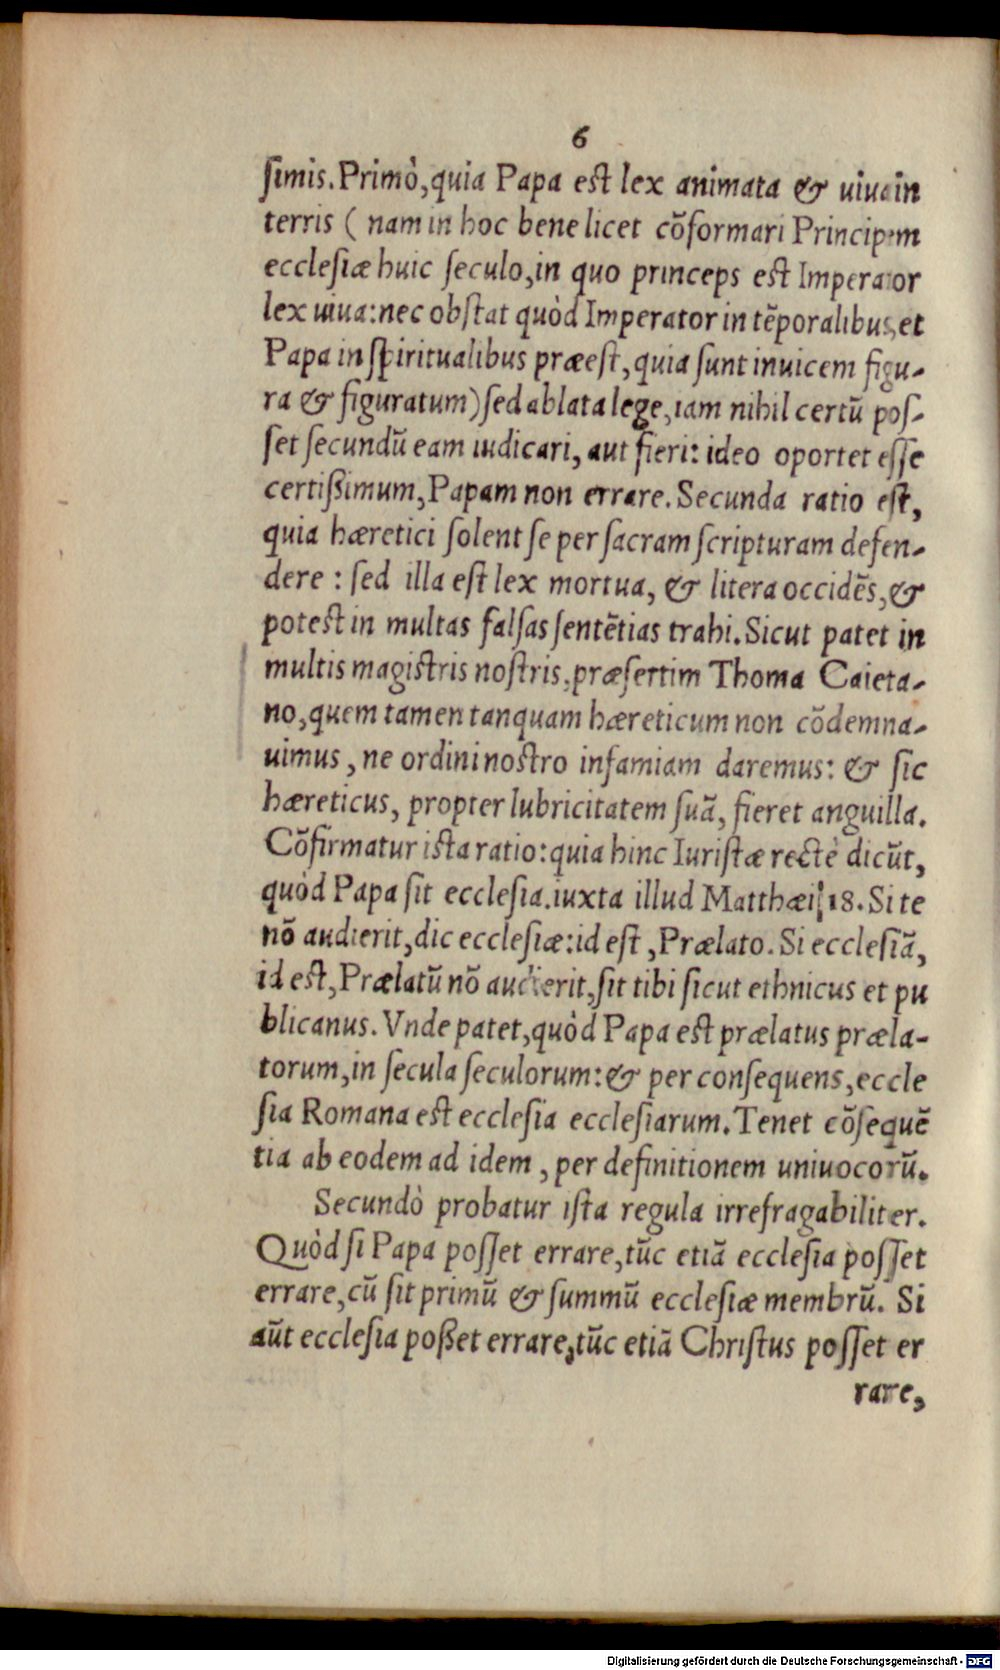 6
ſimis. Primò, quia Papa est lex animata & uiua in
terris ( nam in hoc bene licet cõformari Principem
ecclesiæ huic ſeculo, in quo princeps est Imperator
lex uiua: nec obſtat quòd Imperator in tẽporalibus, et
Papa in ſpiritualibus præeſt, quia ſunt inuicem figu-
ra & figuratum) ſed ablata lege, iam nihil certũ poſ-
ſet ſecundũ eam iudicari, aut fieri: ideo oportet eſſe
certißimum, Papam non errare. Secunda ratio eſt,
quia hæretici ſolent ſe per ſacram ſcripturam defen-
dere : ſed illa eſt lex mortua, & litera occidẽs, &
poteſt in multas falſas ſentẽtias trahi. Sicut patet in
multis magiſtris noſtris, præſertim Thoma Caieta-
no, quem tamen tanquam hæreticum non cõdemna-
uimus, ne ordini noſtro infamiam daremus: & ſic
hæreticus, propter lubricitatem ſuã, fieret anguilla.
Cõfirmatur iſta ratio: quia hinc Iuriſtæ rectè dicũt,
quòd Papa ſit eccleſia. iuxta illud Matthæi 18. Si te
nõ audierit, dic eccleſiæ: id eſt, Prælato. Si eccleſiã,
id eſt, Prælatũ nõ audierit, ſit tibi ſicut ethnicus et pu
blicanus. Vnde patet, quòd Papa eſt prælatus præla-
torum, in ſecula ſeculorum: & per conſequens, eccle
ſia Romana eſt eccleſia eccleſiarum. Tenet cõſequẽ
tia ab eodem ad idem, per definitionem uniuocorũ.
Secundò probatur iſta regula irrefragabiliter.
Quòd ſi Papa poſſet errare, tũc etiã eccleſia poſſet
errare, cũ ſit primũ & ſummũ eccleſiæ membrũ. Si
aũt eccleſia poßet errare, tũc etiã Chriſtus poſſet er
rare,
Digitalisierung gefördert durch die Deutsche Forschungsgemeinschaft - DFG